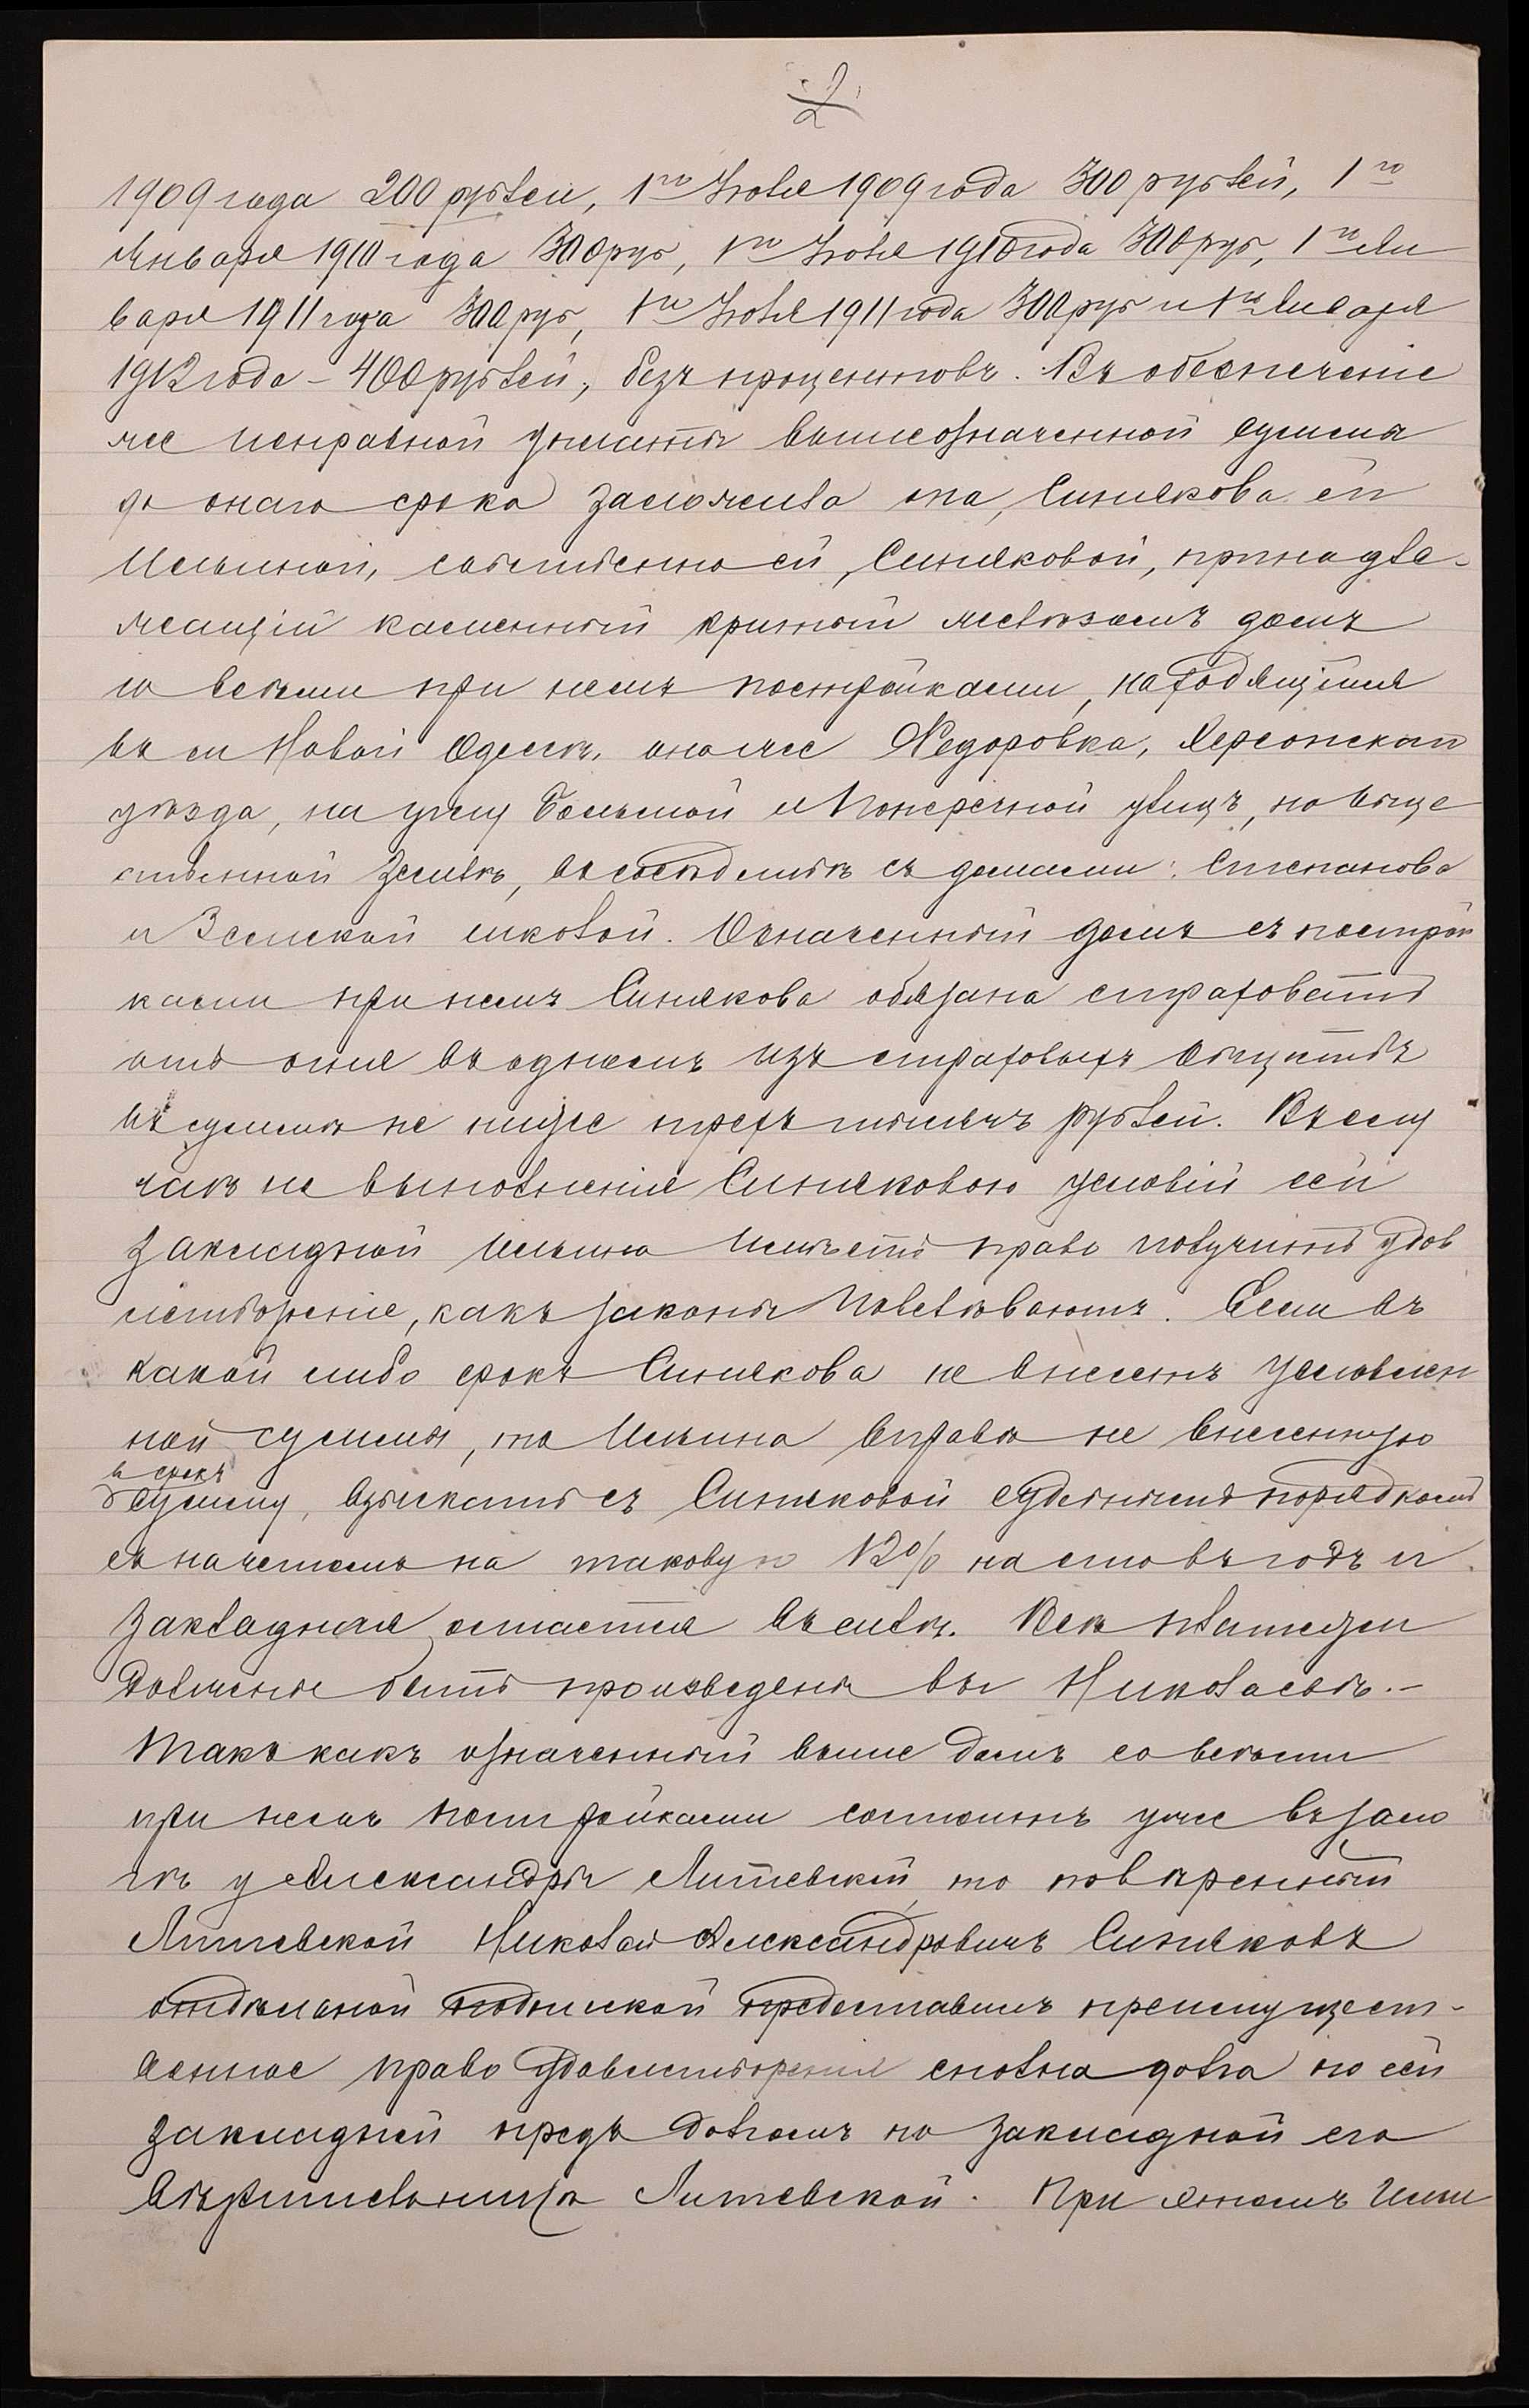 2
2
1909 года 200 рублей, 1го Iюля 1909 года 300 рублей, 1го
Января 1910 года 300 руб, 1го Iюля 1910 года 300 руб, 1го Ян
варя 1911 года 300 руб, 1го Iюля 1911 года 300 руб и 1го Января
1912 года – 400 рублей, безъ процентовъ. Въ обезпеченіе
же исправной уплаты вышеозначенной суммы
до онаго срока заложила она, Синякова ей
Ильиной, собственно ей, Синяковой, принадле-
жащій каменный крытый желѣзомъ домъ
со всѣми при немъ постройками, находящіися
въ м Новой Одессѣ, оно же Федоровка, Херсонскаго
уѣзда, на углу Большой и Поперечной улицъ, на обще
ственной землѣ, въ сосѣдствѣ съ домами: Степанова
и Земской школой. Означенный домъ съ построй
ками при немъ Синякова обязана страховать
отъ огня въ одномъ изъ страховыхъ обществъ
въ суммѣ не ниже трехъ тысячъ рублей. Въ слу
чаѣ не выполненія Синяковою условій сей
закладной Ильина имѣетъ право получить удов
летвореніе, какъ законы повелѣваютъ. Если въ
какой либо срокъ Синякова не внесетъ условлен
ной суммы, то Ильина вправѣ не внесенную
въ срокъ
сумму, взыскать съ Синяковой судебнымъ порядкомъ
съ начетомъ на таковую 12% на сто въ годъ и
закладная остается въ силѣ. Всѣ платежи
должны быть произведены въ г Николаевѣ.–
Такъ какъ означенный выше домъ со всѣми
при немъ постройками состоитъ уже въ зало
гѣ у Александры Литевской, то повѣренный
Литевской Николай Александровичъ Синяковъ
отдѣльной подпиской предоставилъ преимущест-
венное право удовлетворенія сполна долга по сей
закладной предъ долгомъ по закладной его
вѣрительницы Литевской. При этомъ Ильи